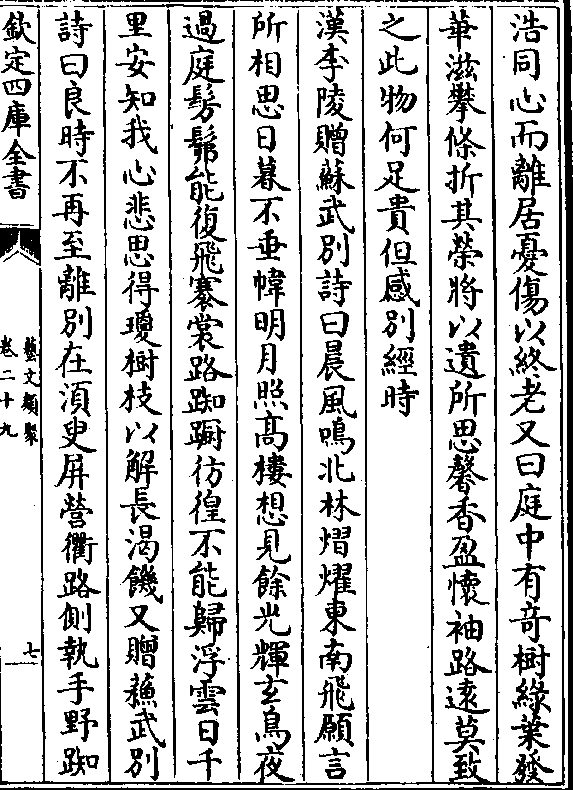 浩同心而離居憂傷以終老又曰庭中有竒樹緑葉發
華滋攀條折其榮將以遺所思馨香盈懷袖路逺莫致
之此物何足貴但感别經時
漢李陵贈蘇武别詩曰晨風鳴北林熠燿東南飛願言
所相思日暮不垂幃明月照髙樓想見餘光輝玄鳥夜
過庭髣髴能復飛褰裳路踟蹰彷徨不能歸浮雲日千
里安知我心悲思得瓊樹枝以解長渴饑又贈蘓武别
詩曰良時不再至離别在湏臾屏營衢路側執手野踟
欽定四庫全書
藝文類聚
卷二十九
七